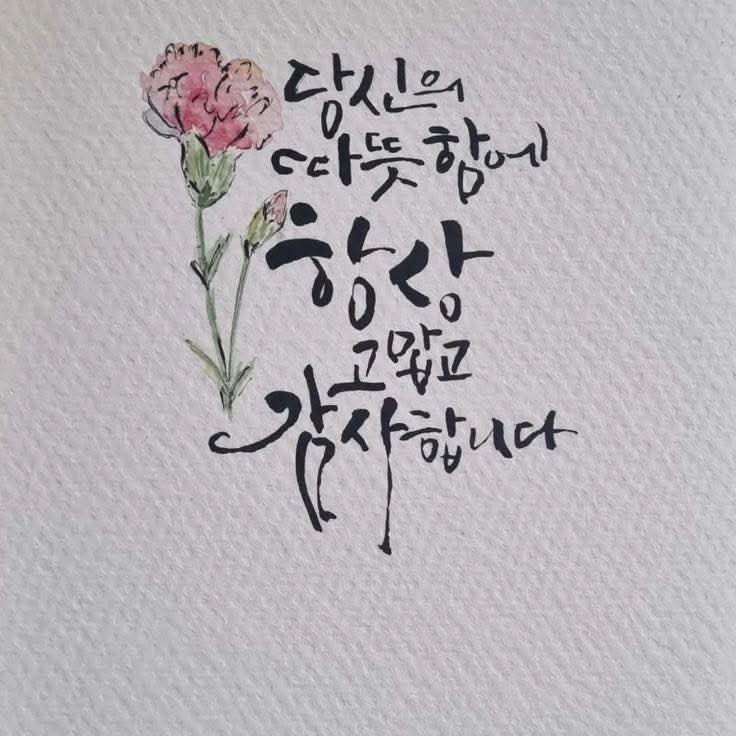 당신의
따뜻함에
항상
고맙고
감사합니다